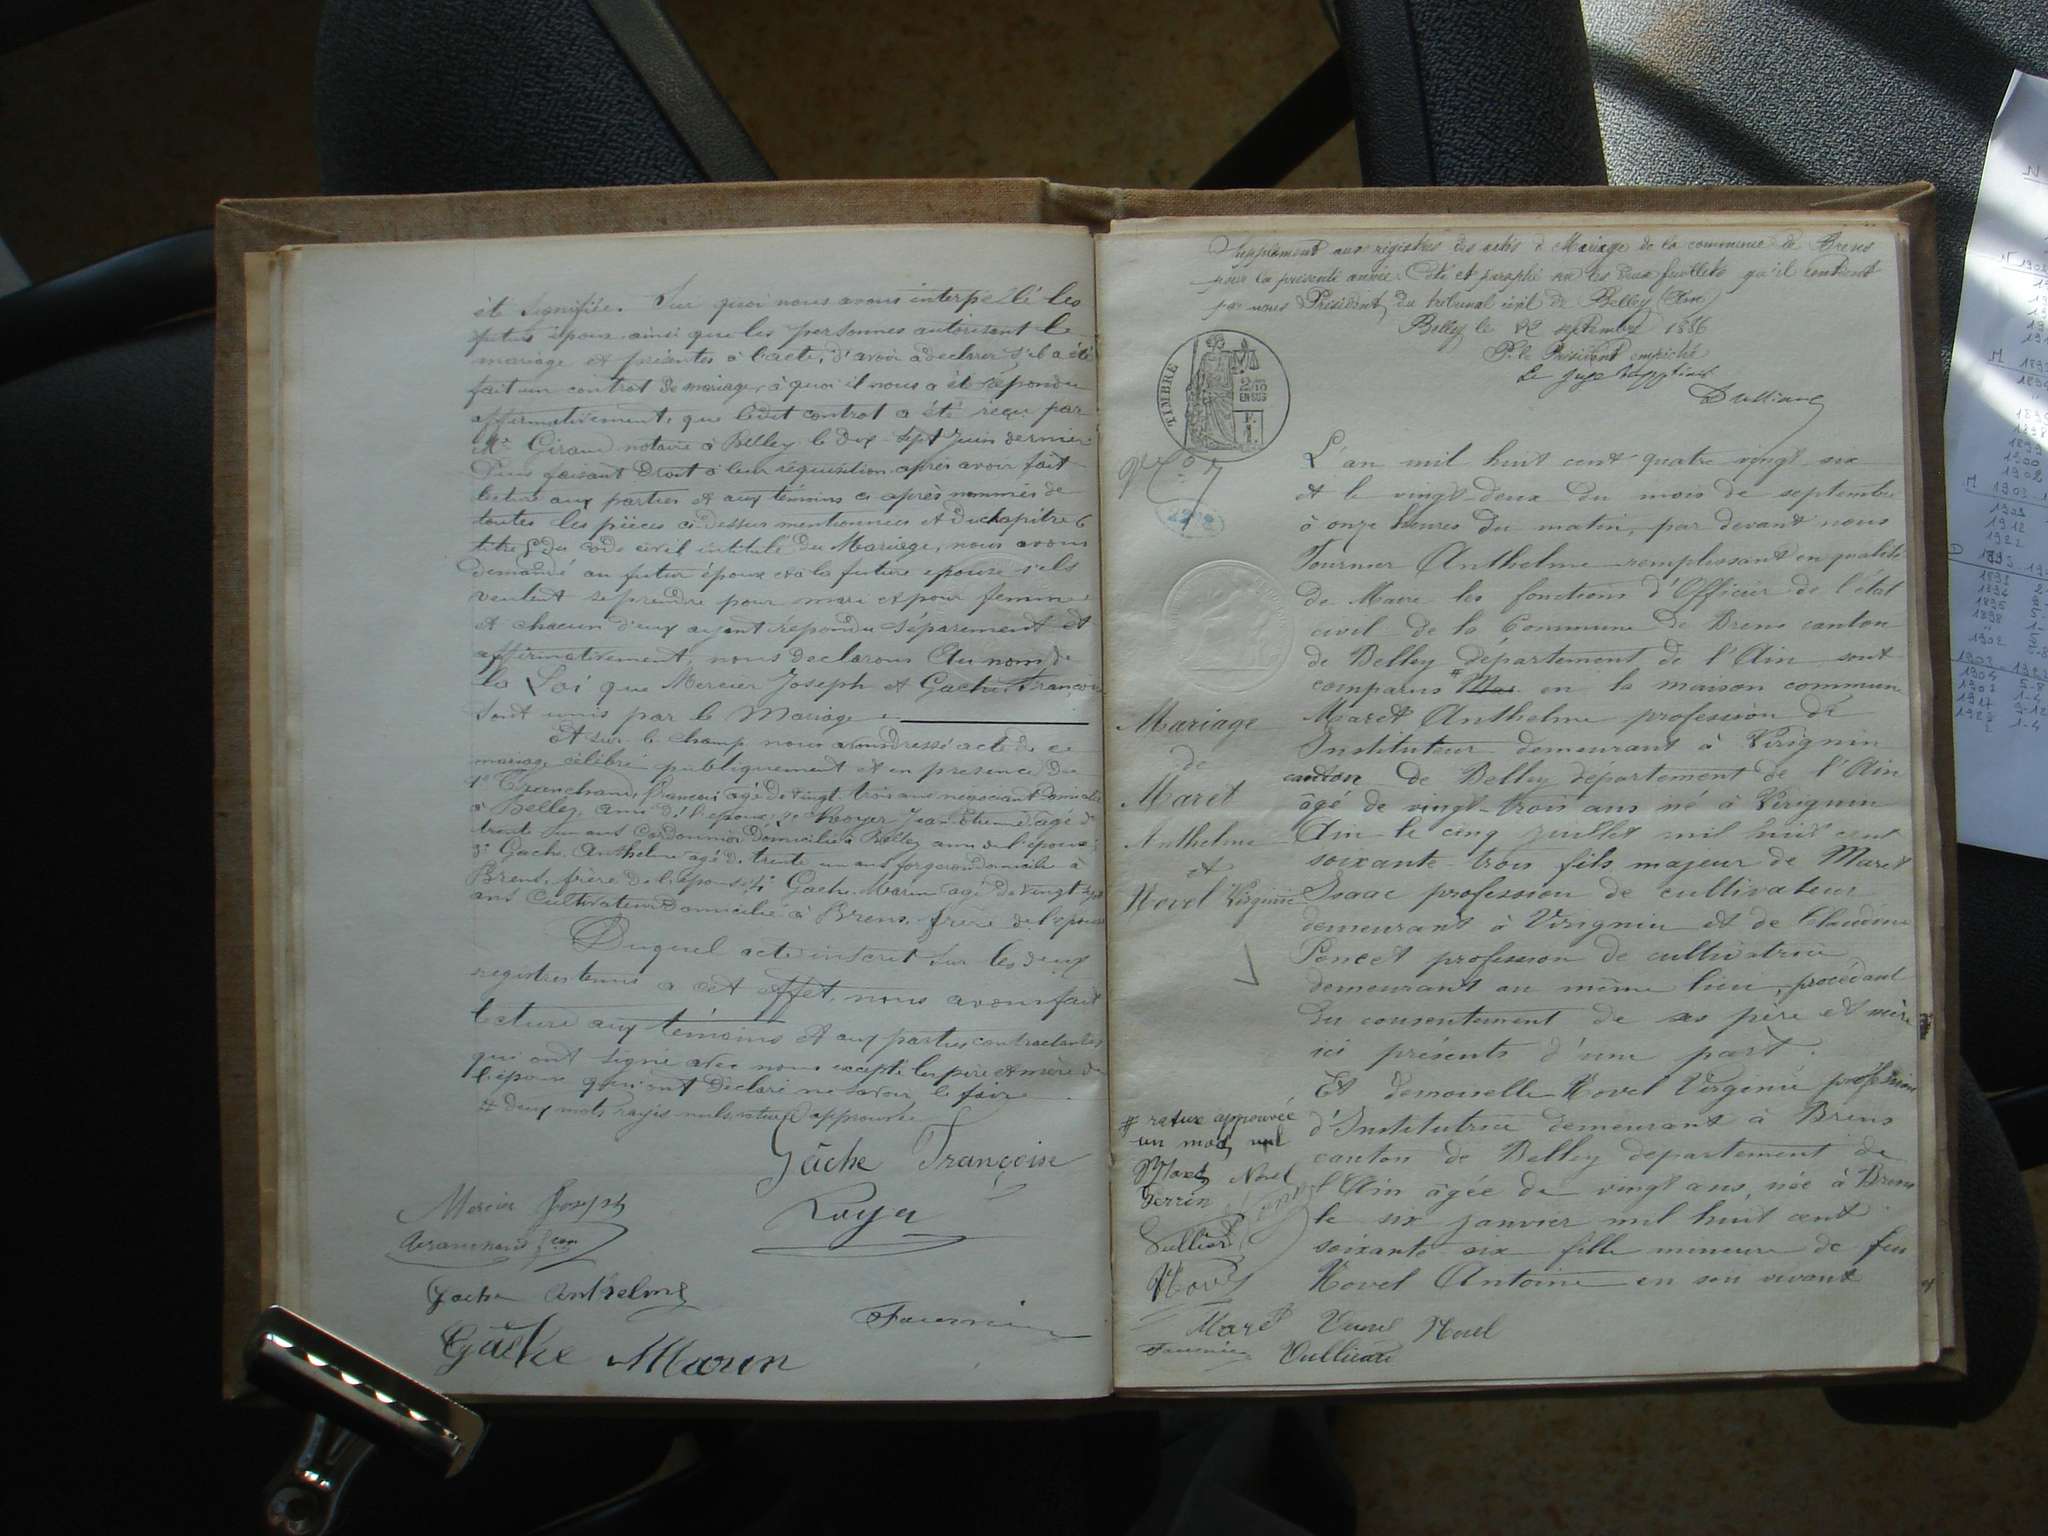 été signifiée. Sur quoi nous avons interpellé les
futurs époux ainsi que les personnes autorisant le
mariage et présentes à l'acte, d'avoir à déclarer s'il a été
fait un contrat de mariage, à quoi il nous a été répondu
affirmativement, que ledit contrat a été reçu par
Me Giraud notaire à Belley le dix-sept Juin dernier
Puis faisant Droit à leur réquisition après avoir fait
lecture aux parties et aux témoins ci après nommés de
toutes les pièces ci dessus mentionnées et du chapitre 6
titre 5 du code civil intitulé du Mariage, nous avons
demandé au futur époux et à la future épouse s'ils
veulent se prendre pour mari et pour femme
et chacun d'eux ayant répondu séparément et
affirmativement, nous déclarons Au nom de
la Loi que Mercier Joseph et Gache Françoise
sont unis par le Mariage
Et sur le champ nous avons dressé acte de ce
mariage célébré publiquement et en présence de
1° Tranchand François agé de vingt-trois ans négociant domicilié
à Belley, ami de l'époux; 2° Royer Jean Etienne agé de
trente un ans cordonnier domicilié à Belley ami de l'époux;
3° Gache Anthelme agé de trente un ans forgeron domicilié à
Brens, frère de l'épouse; 4° Gache Marin agé de vingt sept
ans Cultivateur domicilié à Brens frère de l'épouse
Duquel acte inscrit sur les deux
registres tenus à cet effet, nous avons fait
lecture aux témoins et aux parties contractantes
qui ont signé avec nous excepté les père et mère de
l'époux qui ont déclaré ne savoir le faire
# deux mots rayés nuls, rature approuvée
Gâche Françoise
Mercier Joseph
Royer
Tranchand
Gache Anthelme
Fournier
Gâche Marin
Supplément aux registres des actes de Mariage de la commune de Brens
pour la présente année. Coté et paraphé sur les deux feuillets qu'il contient
par nous Président du tribunal civil de Belley (Ain)
Belley le 22 septembre 1886
Pr le Président empêché
Le Juge suppléant
TIMBRE
2/10
EN SUS
F.
1.
N° 7
L'an mil huit cent quatre vingt six
et le vingt-deux du mois de septembre
à onze heures du matin, par devant nous
Fournier Anthelme remplissant en qualité
de Maire les fonctions d'Officier de l'état
civil de la Commune de Brens canton
de Belley département de l'Ain sont
comparus # Mar en la maison commune
Mariage
de
Maret
Anthelme
et
Hovel Virginie
Maret Anthelme profession de
Instituteur demeurant à Virignin
canton de Belley département de l'Ain
âgé de vingt-trois ans né à Virignin
Ain le cinq juillet mil huit cent
soixante-trois fils majeur de Maret
Isaac profession de cultivateur
demeurant à Virignin et de Claudine
Poncet profession de cultivatrice
demeurant au même lieu, procédant
du consentement de ses père et mère
ici présents d'une part.
Et demoiselle Hovel Virginie profession
d'Institutrice demeurant à Brens
canton de Belley département de
l'Ain âgée de vingt ans, née à Brens
le six janvier mil huit cent
soixante-six fille mineure de feu
Hovel Antoine en son vivant
# rature approuvée
un mot nul
Maret Hovel
Perrin
Vulliod
Hovel
Maret Veuve Hovel
Fournier